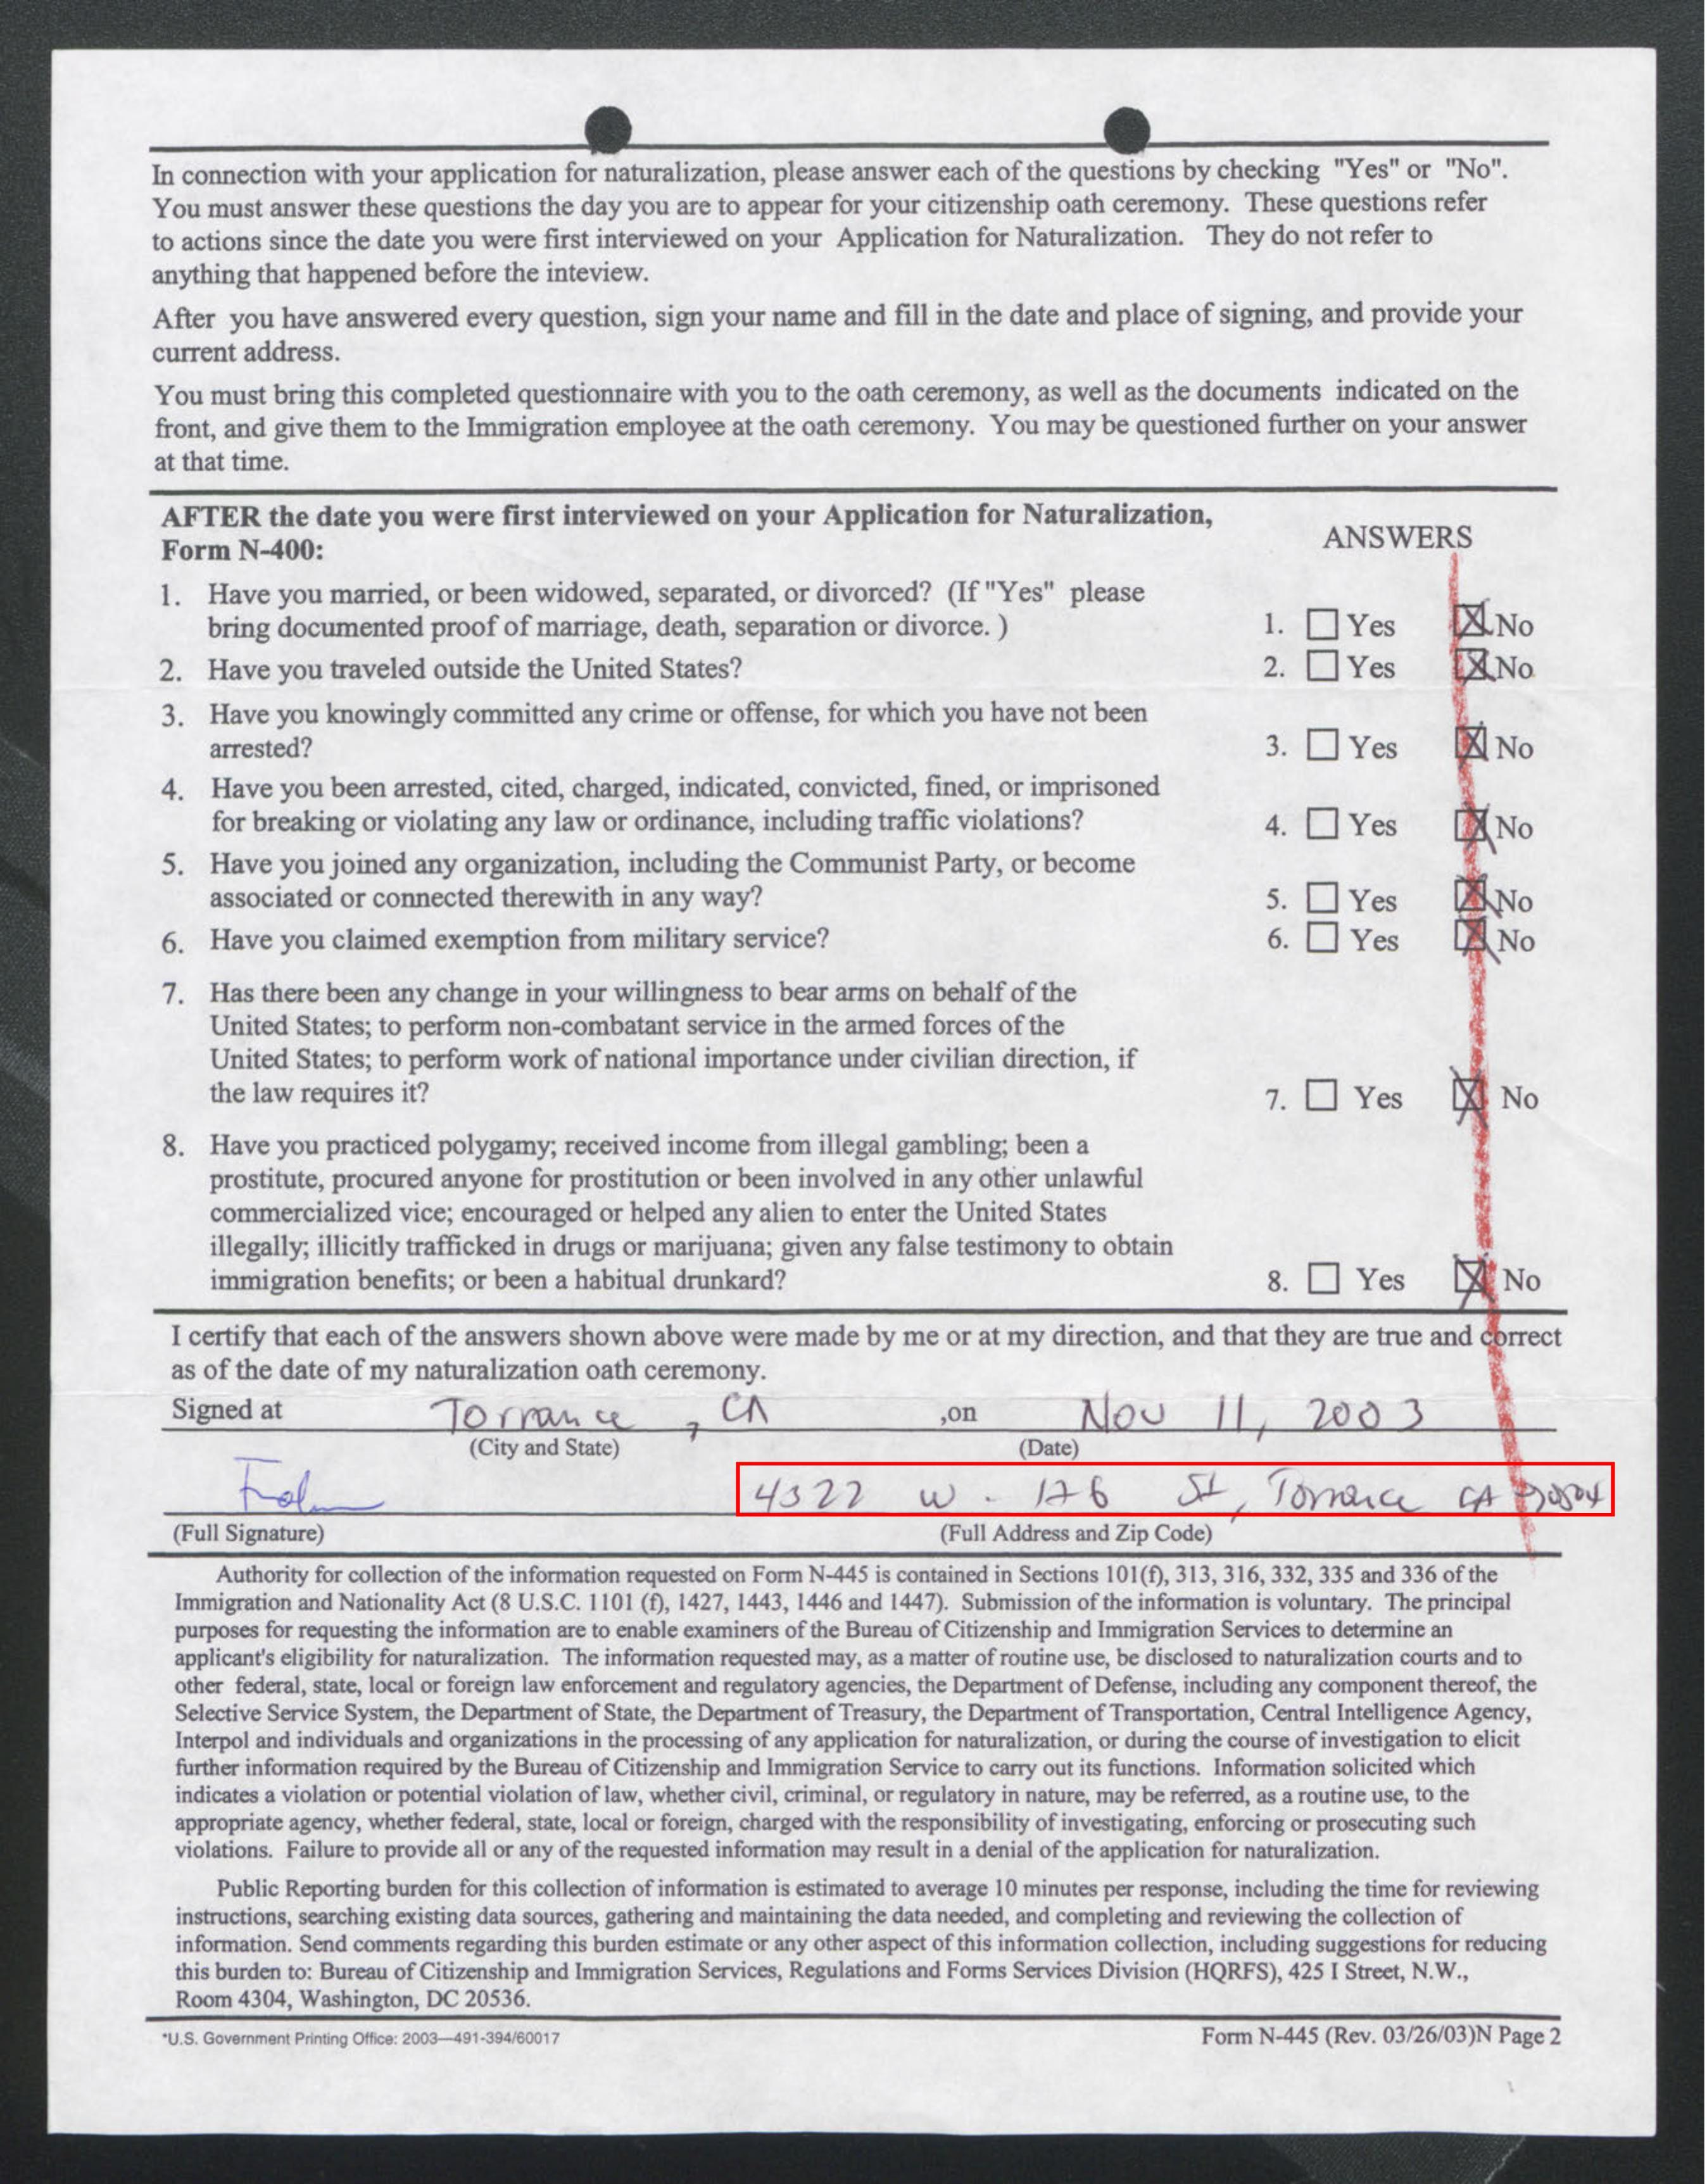 In connection with your application for naturalization, please answer each of the questions by checking "Yes" or "No".
You must answer these questions the day you are to appear for your citizenship oath ceremony. These questions refer
to actions since the date you were first interviewed on your Application for Naturalization. They do not refer to
anything that happened before the inteview.
After you have answered every question, sign your name and fill in the date and place of signing, and provide your
current address.
You must bring this completed questionnaire with you to the oath ceremony, as well as the documents indicated on the
front, and give them to the Immigration employee at the oath ceremony. You may be questioned further on your answer
at that time.
AFTER the date you were first interviewed on your Application for Naturalization,
Form N-400:
ANSWERS
1. Have you married, or been widowed, separated, or divorced? (If "Yes" please
bring documented proof of marriage, death, separation or divorce. )
1. Yes No
2. Have you traveled outside the United States?
2. Yes No
3. Have you knowingly committed any crime or offense, for which you have not been
arrested?
3. Yes No
4. Have you been arrested, cited, charged, indicated, convicted, fined, or imprisoned
for breaking or violating any law or ordinance, including traffic violations?
4. Yes No
5. Have you joined any organization, including the Communist Party, or become
associated or connected therewith in any way?
5. Yes No
6. Have you claimed exemption from military service?
6. Yes No
7. Has there been any change in your willingness to bear arms on behalf of the
United States; to perform non-combatant service in the armed forces of the
United States; to perform work of national importance under civilian direction, if
the law requires it?
7. Yes No
8. Have you practiced polygamy; received income from illegal gambling; been a
prostitute, procured anyone for prostitution or been involved in any other unlawful
commercialized vice; encouraged or helped any alien to enter the United States
illegally; illicitly trafficked in drugs or marijuana; given any false testimony to obtain
immigration benefits; or been a habitual drunkard?
8. Yes No
I certify that each of the answers shown above were made by me or at my direction, and that they are true and correct
as of the date of my naturalization oath ceremony.
Signed at Torrance, CA ,on Nov 11, 2003
(City and State) (Date)
4322 W. 176 St, Torrance CA 90504
(Full Signature) (Full Address and Zip Code)
Authority for collection of the information requested on Form N-445 is contained in Sections 101(f), 313, 316, 332, 335 and 336 of the
Immigration and Nationality Act (8 U.S.C. 1101 (f), 1427, 1443, 1446 and 1447). Submission of the information is voluntary. The principal
purposes for requesting the information are to enable examiners of the Bureau of Citizenship and Immigration Services to determine an
applicant's eligibility for naturalization. The information requested may, as a matter of routine use, be disclosed to naturalization courts and to
other federal, state, local or foreign law enforcement and regulatory agencies, the Department of Defense, including any component thereof, the
Selective Service System, the Department of State, the Department of Treasury, the Department of Transportation, Central Intelligence Agency,
Interpol and individuals and organizations in the processing of any application for naturalization, or during the course of investigation to elicit
further information required by the Bureau of Citizenship and Immigration Service to carry out its functions. Information solicited which
indicates a violation or potential violation of law, whether civil, criminal, or regulatory in nature, may be referred, as a routine use, to the
appropriate agency, whether federal, state, local or foreign, charged with the responsibility of investigating, enforcing or prosecuting such
violations. Failure to provide all or any of the requested information may result in a denial of the application for naturalization.
Public Reporting burden for this collection of information is estimated to average 10 minutes per response, including the time for reviewing
instructions, searching existing data sources, gathering and maintaining the data needed, and completing and reviewing the collection of
information. Send comments regarding this burden estimate or any other aspect of this information collection, including suggestions for reducing
this burden to: Bureau of Citizenship and Immigration Services, Regulations and Forms Services Division (HQRFS), 425 I Street, N.W.,
Room 4304, Washington, DC 20536.
*U.S. Government Printing Office: 2003—491-394/60017
Form N-445 (Rev. 03/26/03)N Page 2